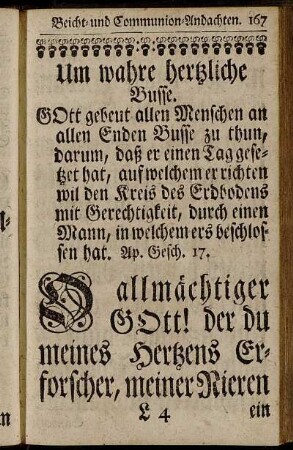 Beicht- und Communion-Andachten. 167
Um wahre hertzliche
Busse.
GOtt gebeut allen Menschen an
allen Enden Busse zu thun,
darum, daß er einen Tag gese-
tzet hat, auf welchem er richten
wil den Kreis des Erdbodens
mit Gerechtigkeit, durch einen
Mann, in welchem ers beschlos-
sen hat. Ap. Gesch. 17.
O allmächtiger
GOtt! der du
meines Hertzens Er-
forscher, meiner Nieren
L 4 ein